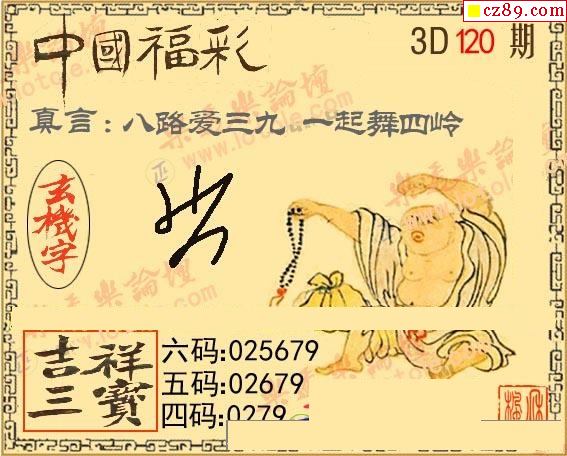 cz89.com
中國福彩
3D 120 期
真言：八路爱三九 一起舞四岭
玄機字
吉祥三寶
六码:025679
五码:02679
四码:0279
樂彩論壇